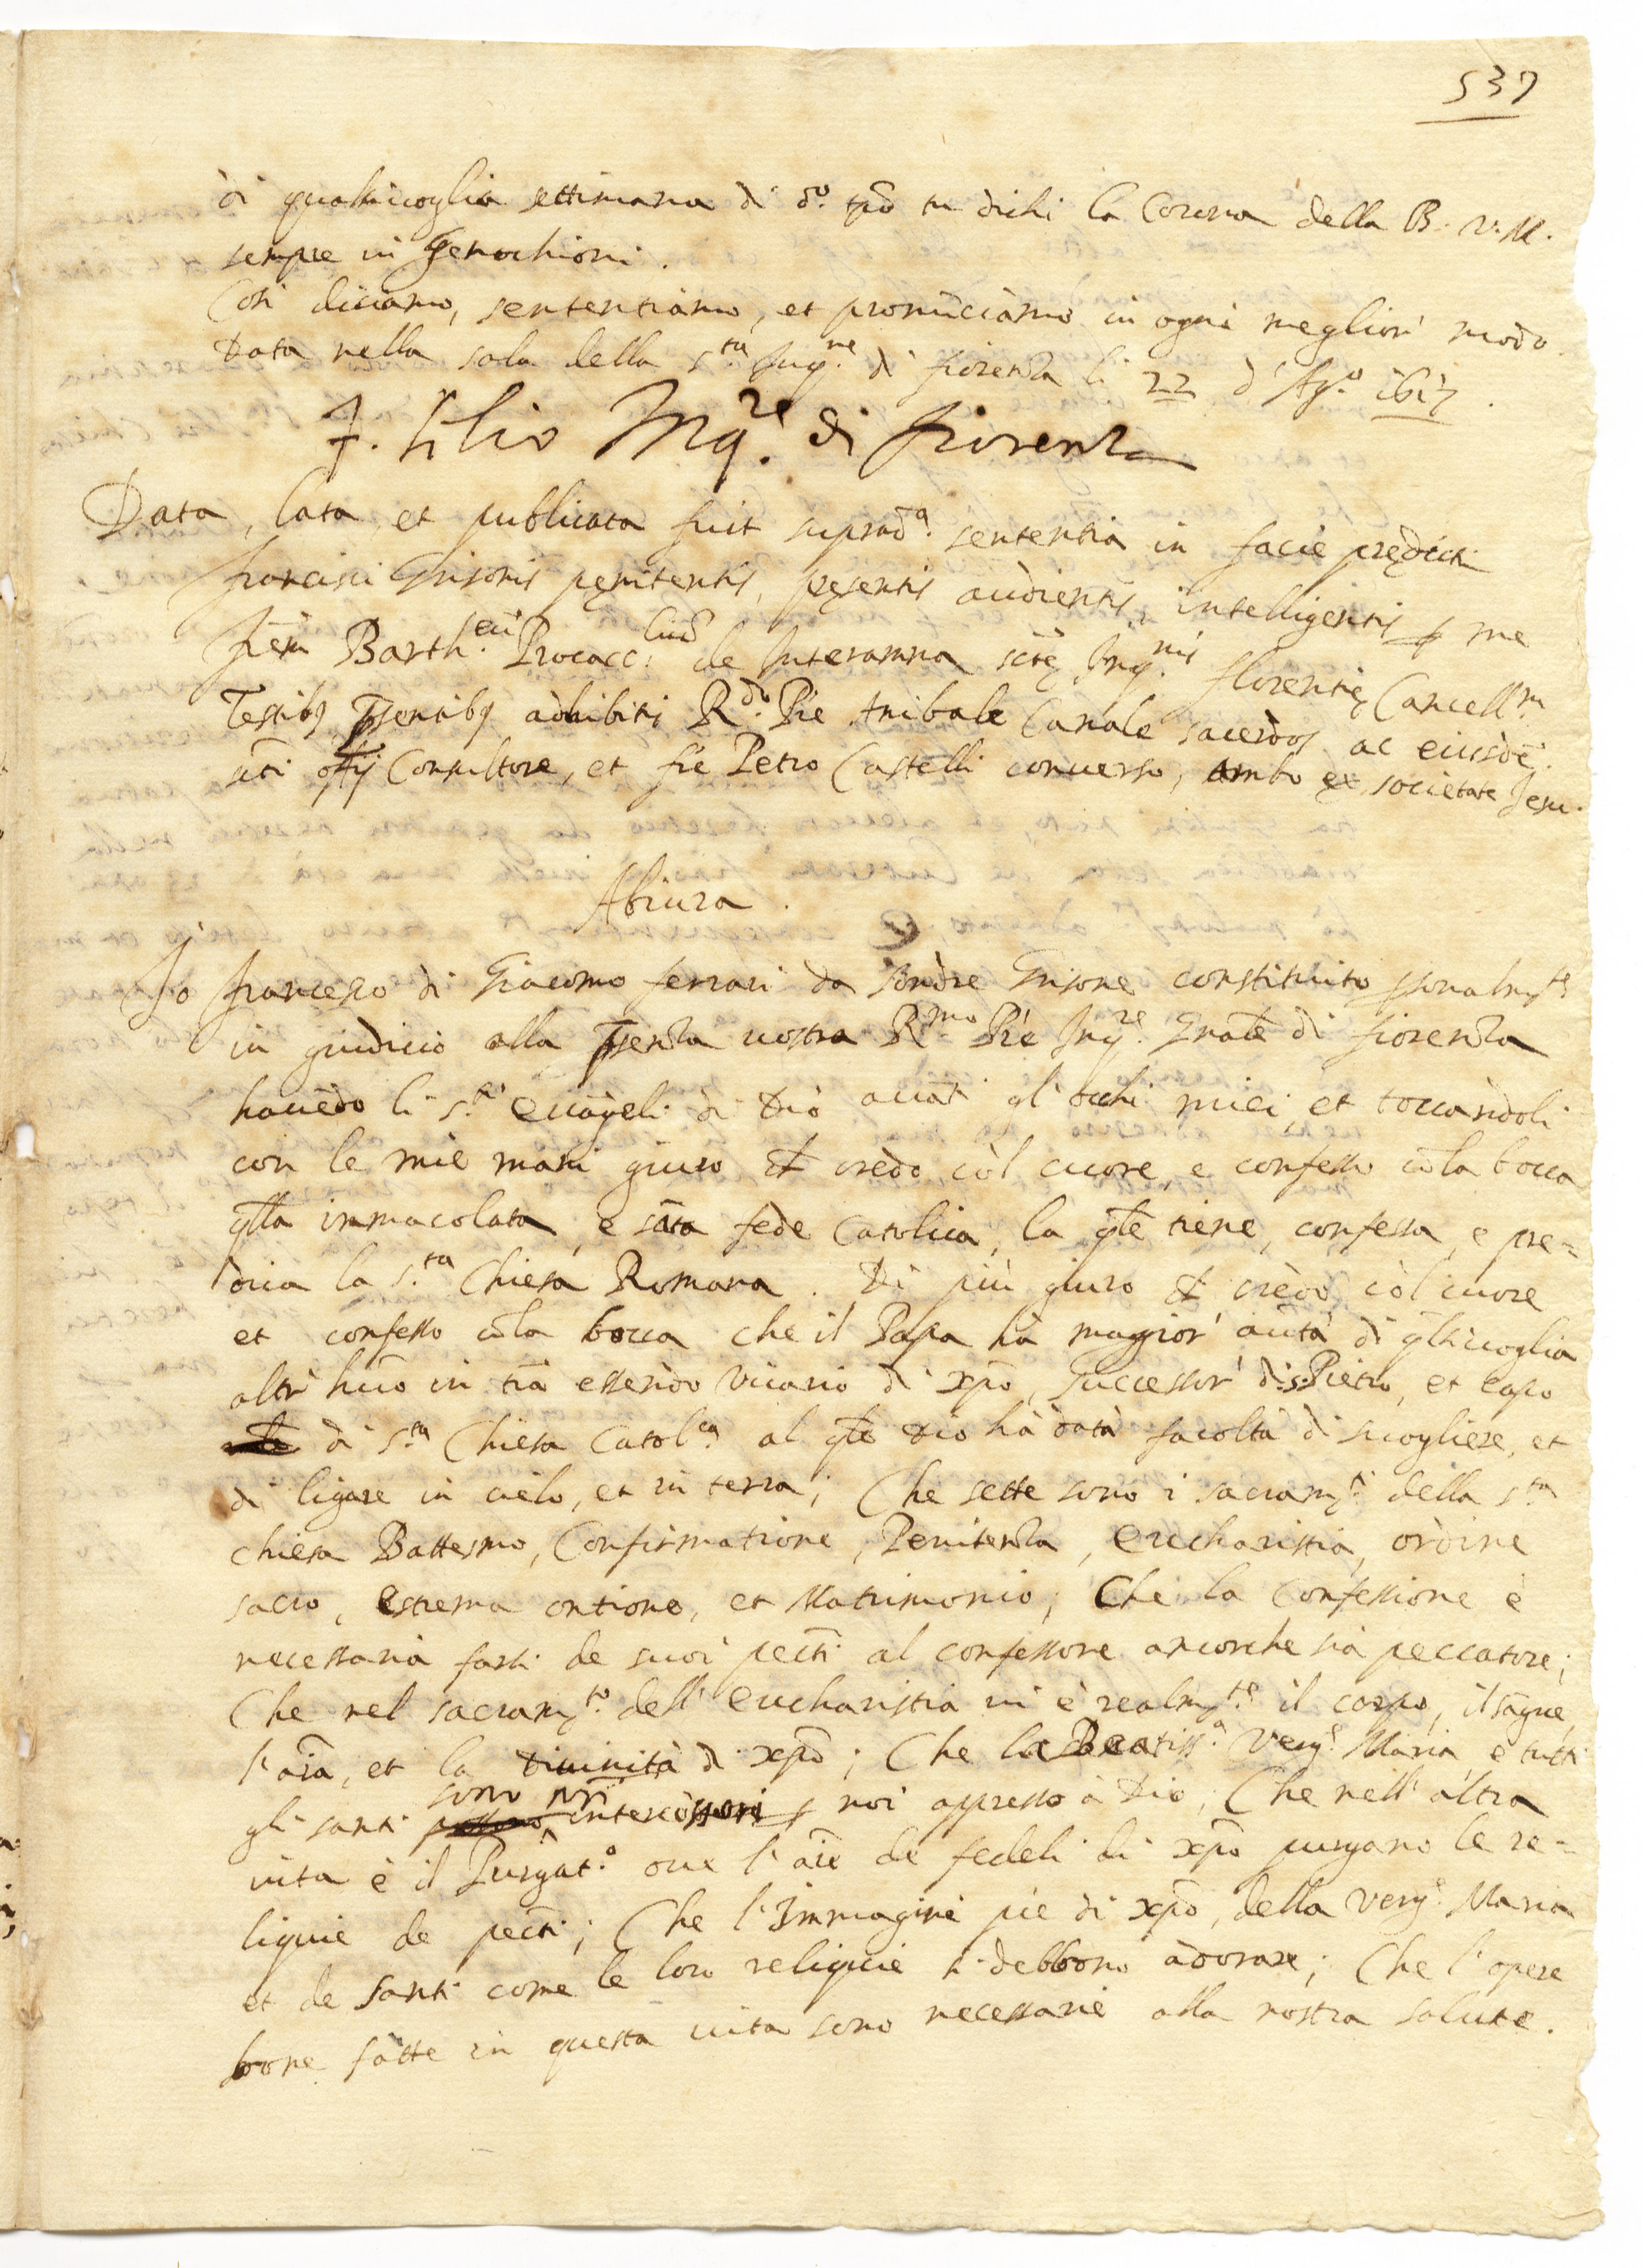 537
di qualsivoglia settimana di d.º tpō tu dichi la Corona della B. V. M.
sempre in genochioni.
Così diciamo, sententiamo, et pronūciamo in ogni meglior' modo.
Data nella sala della S.ta Inq.ne di fiorenza li 22 d'Ag.º 1617.
F. Lelio Inq.re di fiorenza
Data, lata, et publicata fuit suprad.a sententia in facie prędicti
francisci Grisonis pęnitentis, pręsentis audientis, intelligentis p me
frēm Barth.eū Procacc.liūm de Interamna sctę Inq.nis florentię Cancell.m
Testibq pñsentibq adhibitis R.do Pre Anibale Canale sacerdos ac eiusdē
scti offij Consultore, et fre Petro Castelli converso, ambo ex societate Jesu.
Abiura.
Io francesco di Giacomo ferrari da Grisone constituito psonalmte
in giudicio alla pñsenza vostra R.mo Pre Inq.re Gnāle di fiorenza
havēdo li S.ti Evāgeli di Dio avāti gl'occhi miei, et toccandoli
con le mie mani giuro che credo col cuore, e confesso cō la bocca
qlla immacolata, e sāta fede Catolica, la qle tiene, confessa, e pre=
dica la S.ta Chiesa Romana. Di più giuro che credo col cuore
et confesso cō la bocca che il Papa hà maggior' autā di qlsivoglia
altr' huō in trā essendo Vicario di xpō, successor' di S. Pietro, et capo
di S.ta Chiesa Catol.ca al qle Dio hà data facoltà di sciogliere, et
di ligare in cielo, et in terra; Che sette sono i sacram.ti della S.ta
chiesa Battesmo, Confirmatione, Penitenza, eucharistia, ordine
sacro, estrema ontione, et Matrimonio; Che la Confessione è
necessaria farsi de suoi pecti al confessore ancorche sia peccatore;
Che nel sacram.to dell' eucharistia vi è realm.te il corpo, il sāgue,
l'aīa, et la divinità di xpō; Che la Beatiss.a Verg.e Maria, e tutti
gli santi sono nri intercessori p noi appresso à Dio; Che nell' altra
vita è il Purgat.º ove l'aīe de fedeli di xpō purgano le re=
liquie de pecti; Che l'Immagine pie di xpō, della Verg.e Maria
et de santi come le loro reliquie si debbono adorare; Che l'opere
bone fatte in questa vita sono necessarie alla nostra salute.